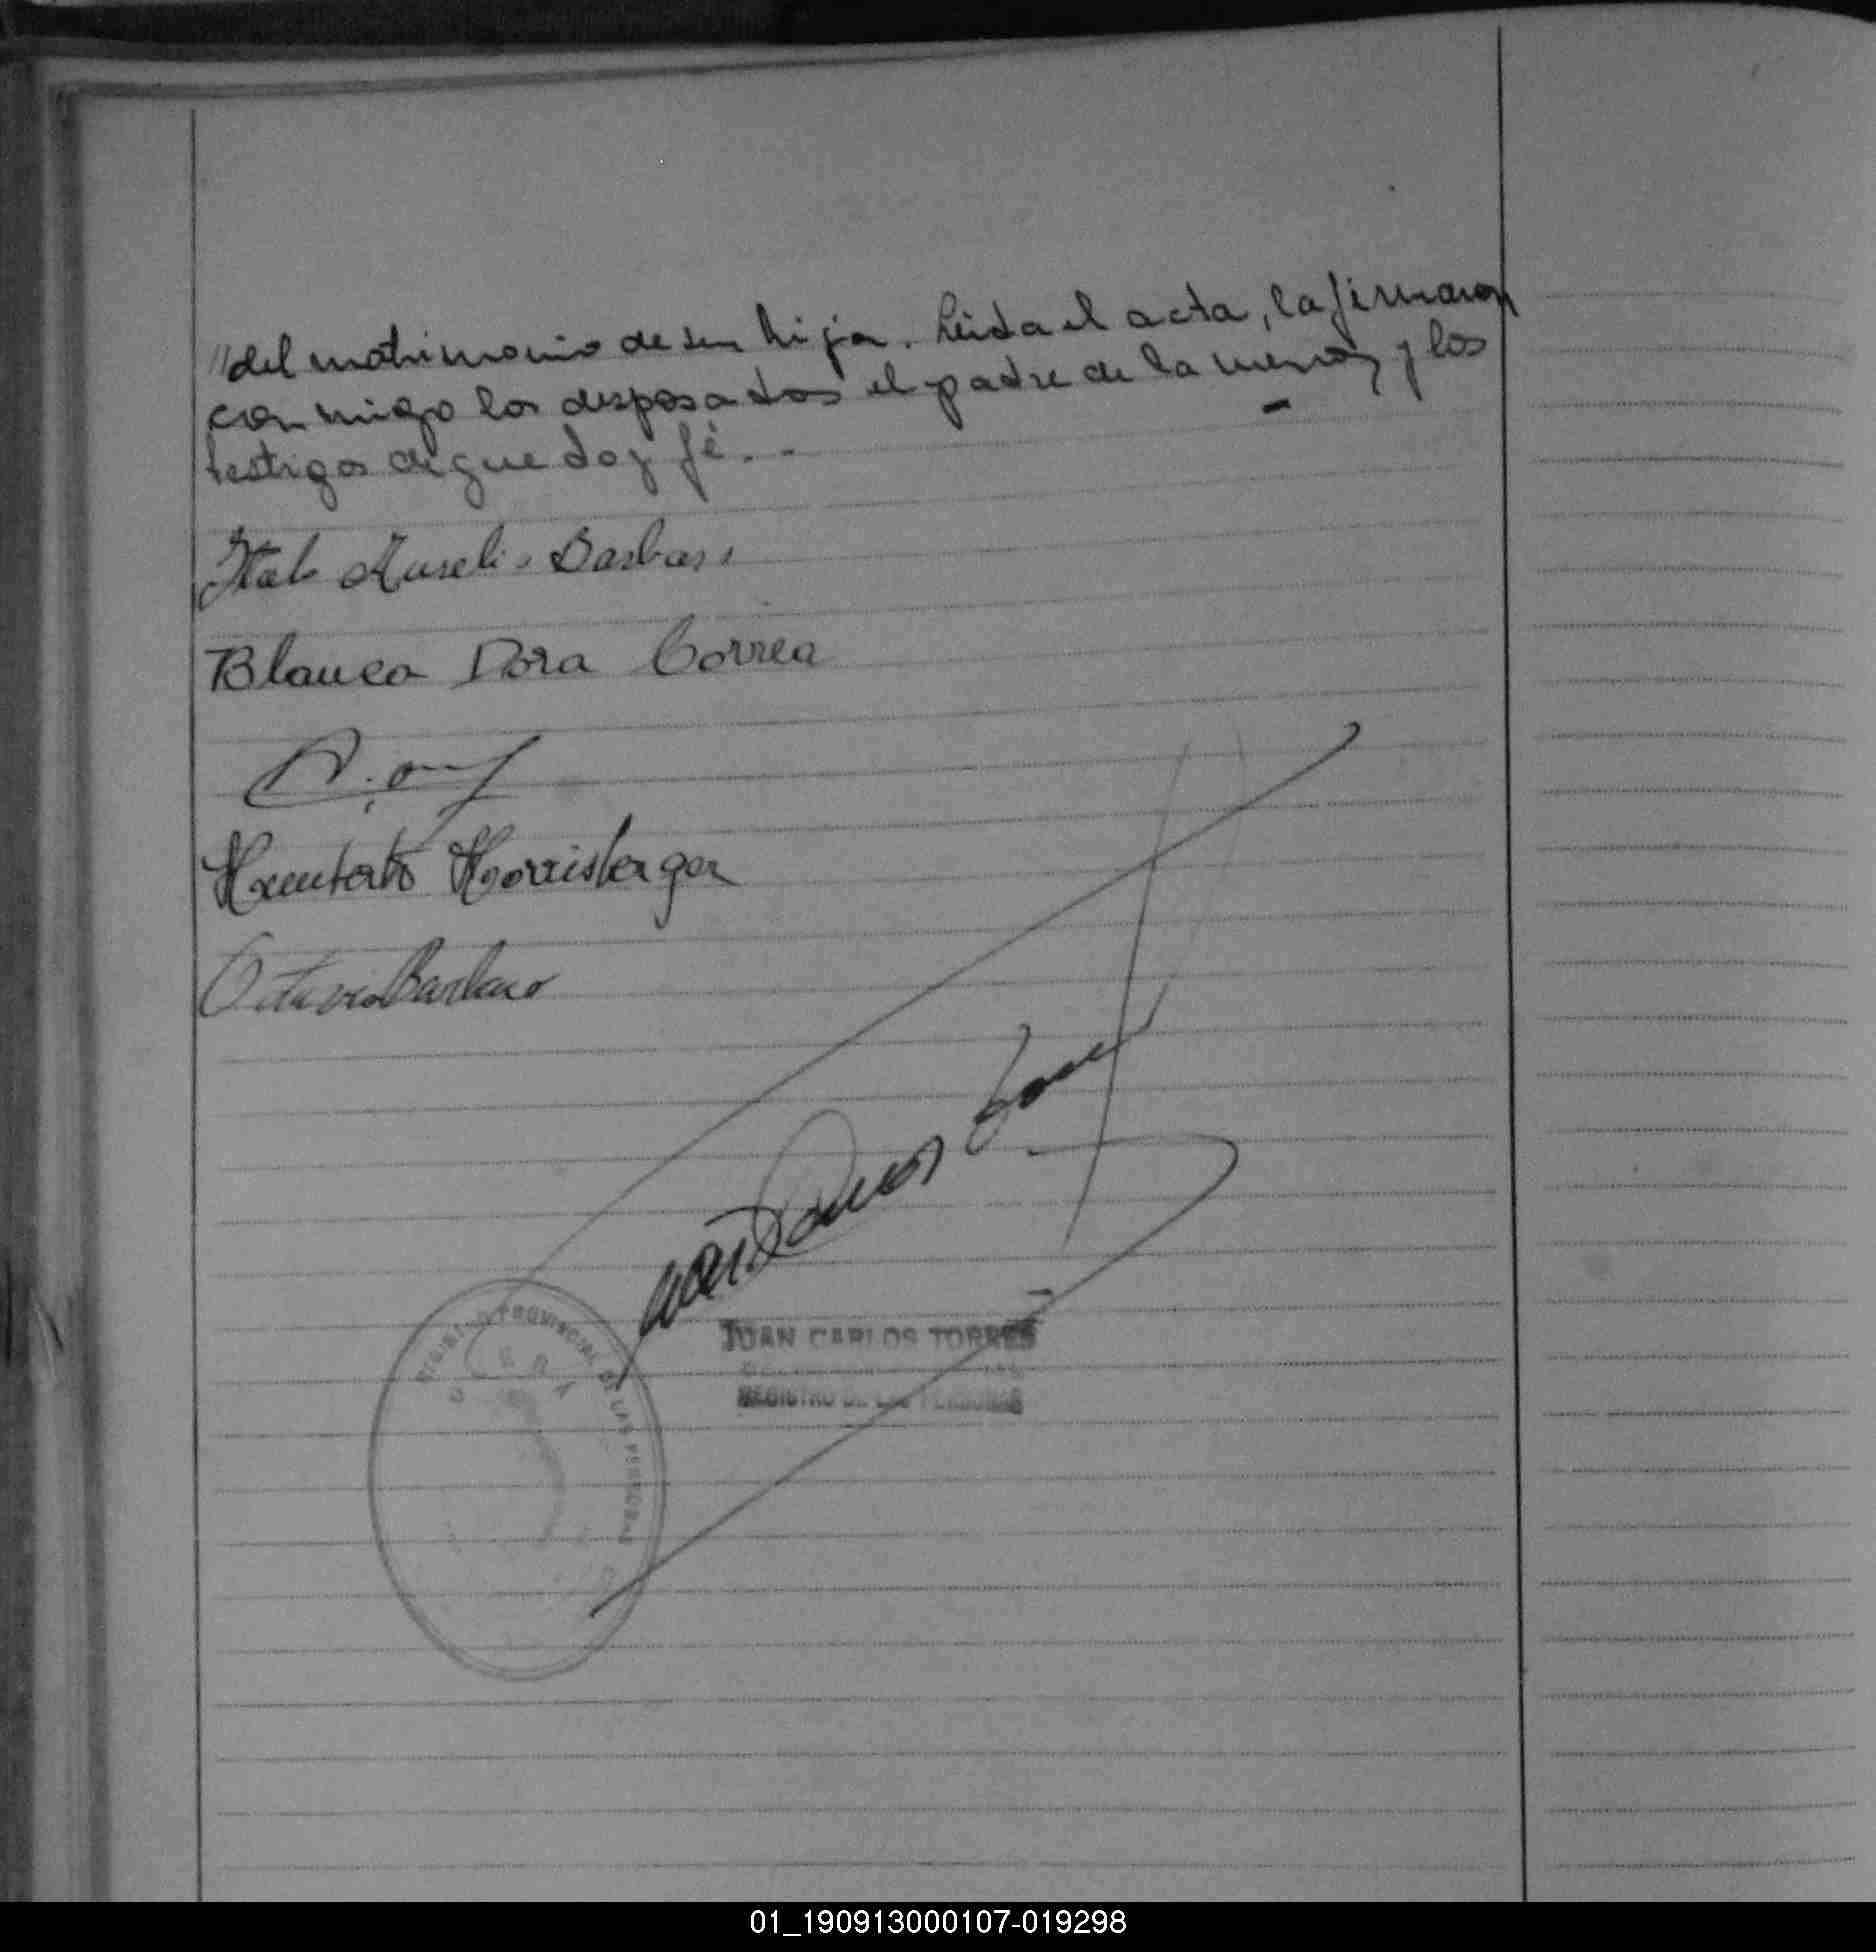 "del matrimonio de su hija. Leida el acta, la firmaron
con migo los desposados el padre de la menor y los
testigos de que doy fé. -
Italo Aurelio Barbaro
Blanca Dora Correa
Humberto Horrisberger
Octavio Barbaro
JUAN CARLOS TORRES
REGISTRO DE LAS PERSONAS
REGISTRO PROVINCIAL DE LAS PERSONAS
01_190913000107-019298